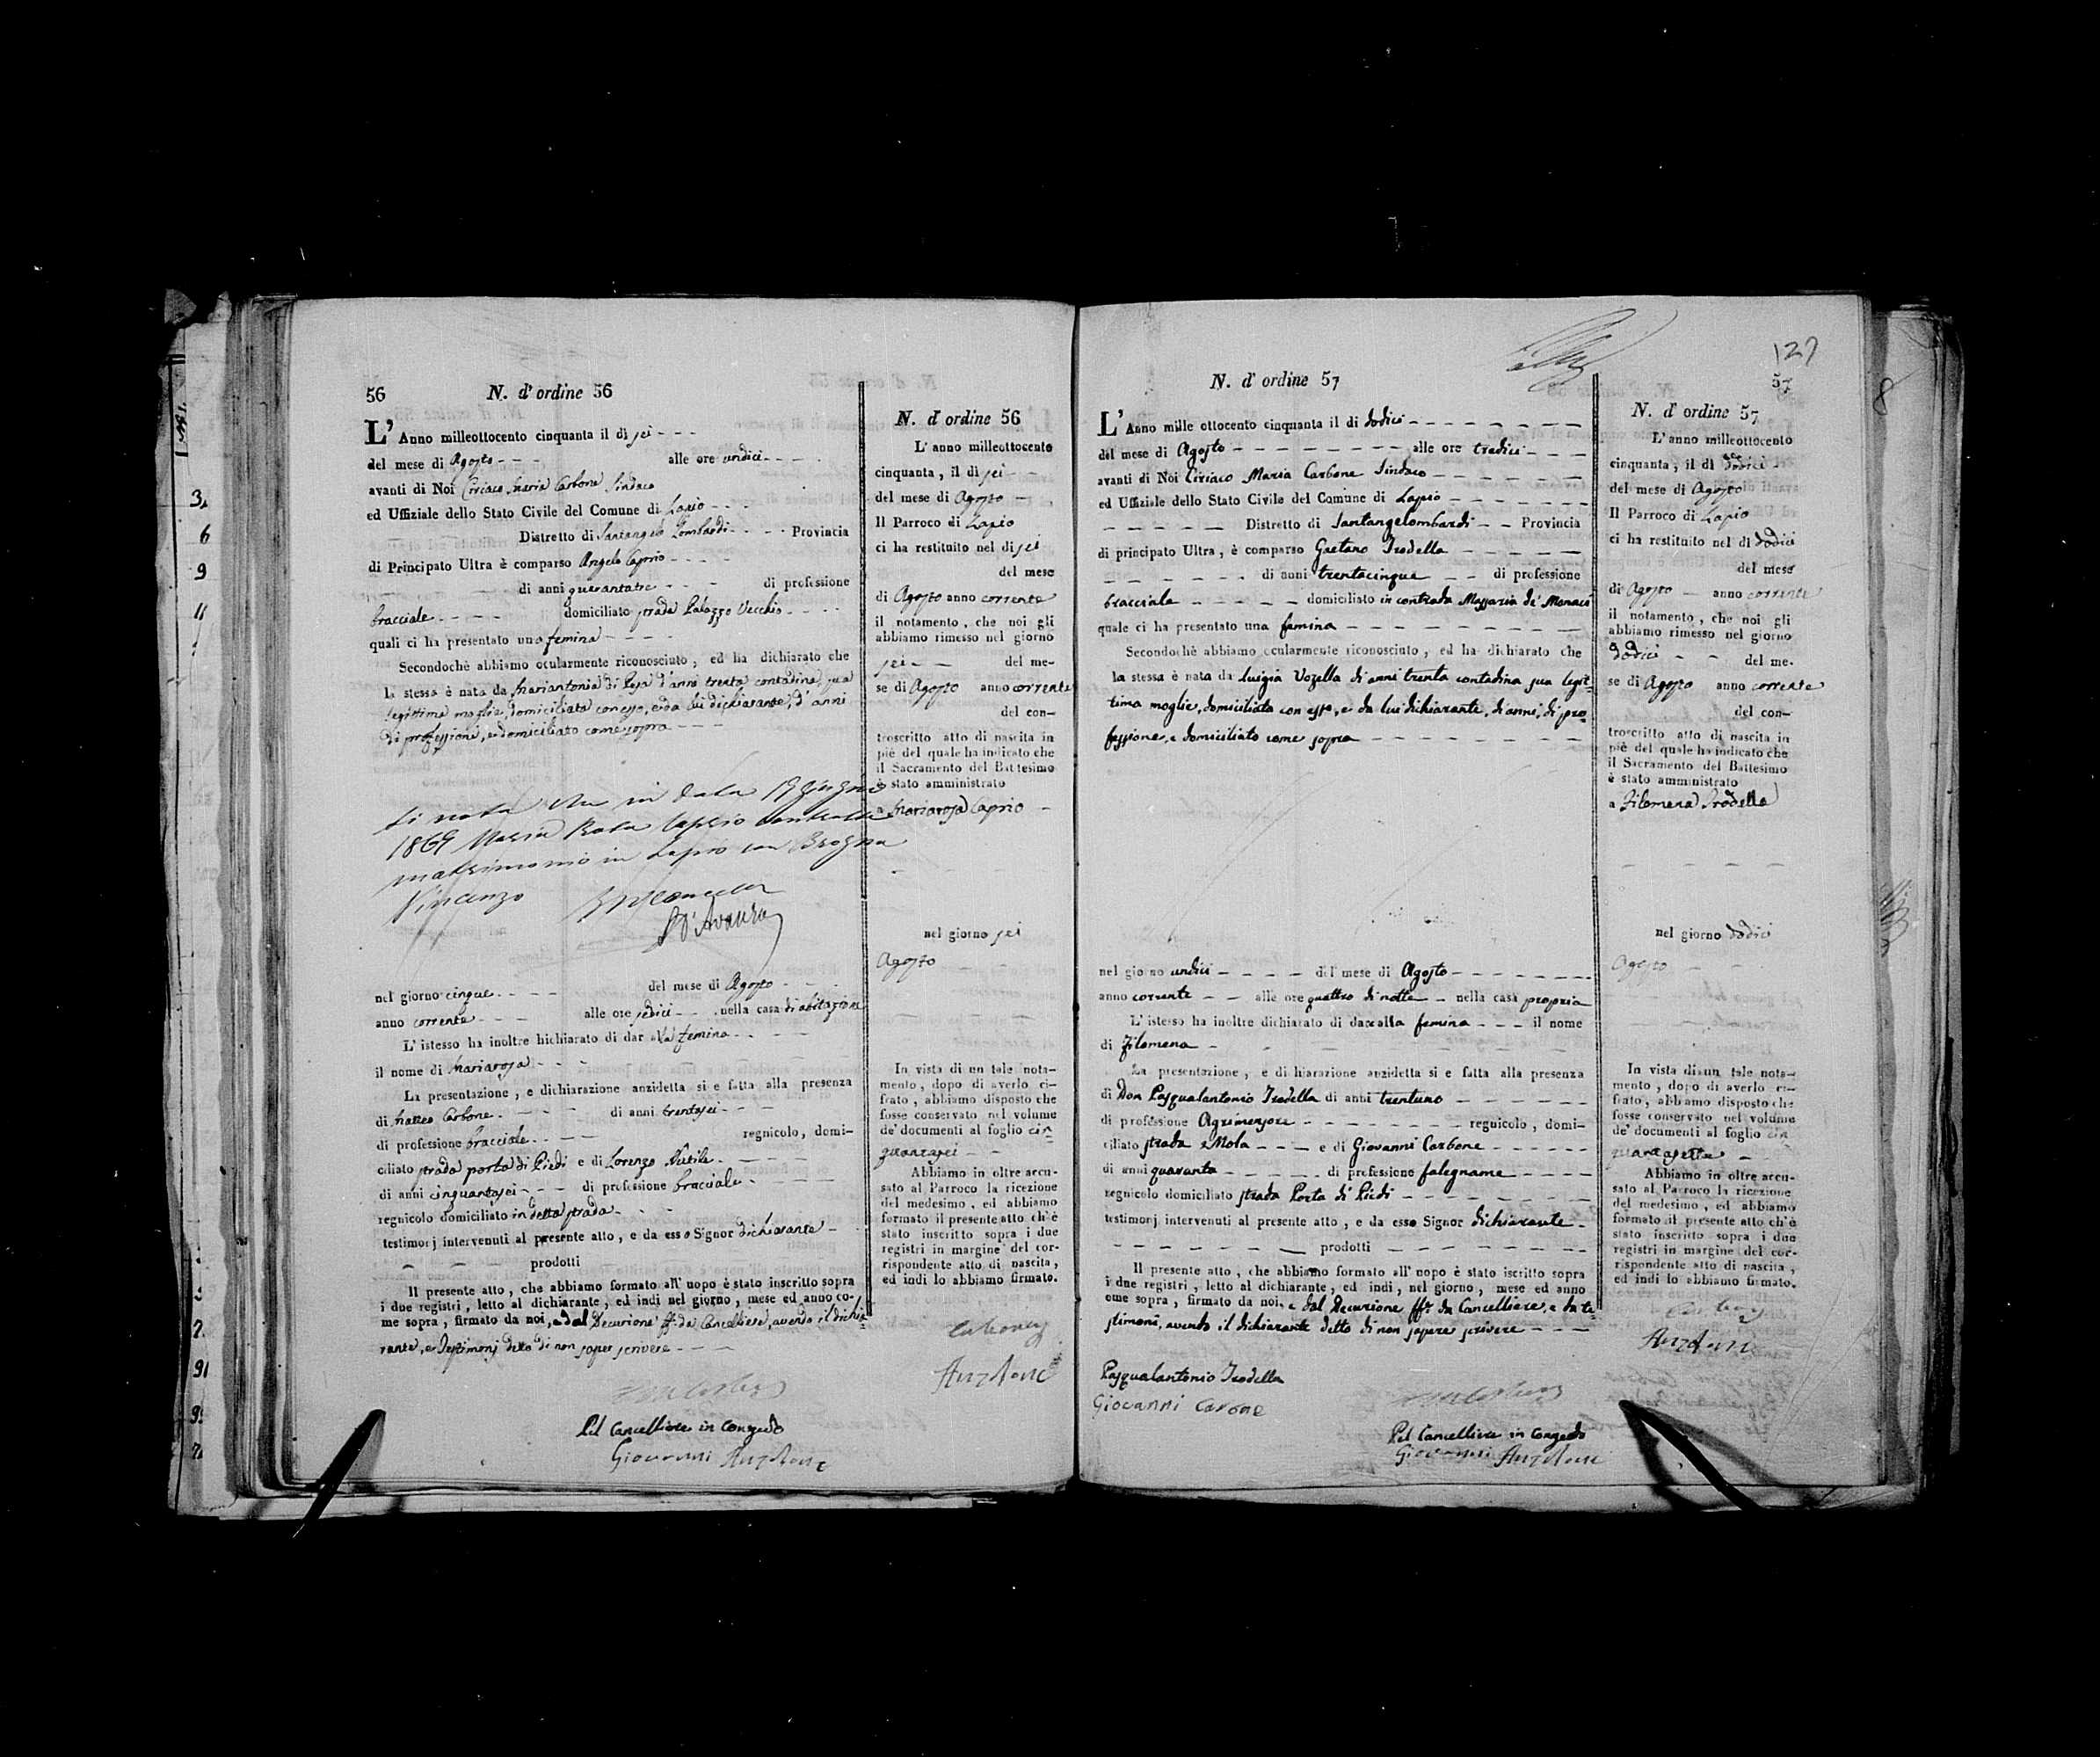 56
N. d' ordine 56
L' Anno milleottocento cinquanta il dì sei
del mese di Agosto alle ore undici
avanti di Noi Ciriaco Maria Carbone Sindaco
ed Uffiziale dello Stato Civile del Comune di Lapio
Distretto di Santangelo Lombardi Provincia
di Principato Ultra è comparso Angelo Caprio
di anni quarantatre di professione
bracciale domiciliato strada Palazzo Vecchio
quali ci ha presentato una femina
Secondochè abbiamo ocularmente riconosciuto, ed ha dichiarato che
la stessa è nata da Mariantonia di Pesa d'anni trenta contadina, sua
legittima moglie, domiciliata con esso, e da lui dichiarante, d' anni
di professione, e domiciliato come sopra
Si nota che in data 19 giugno
1869 Maria Rosa Caprio contratto
matrimonio in Lapio con Brogna
Vincenzo
D'Avanzo
nel giorno cinque del mese di Agosto
anno corrente alle ore sedici nella casa di abitazione
L' istesso ha inoltre hichiarato di dar alla femina
il nome di Mariarosa
La presentazione, e dichiarazione anzidetta si e fatta alla presenza
di Matteo Carbone di anni trentasei
di professione bracciale regnicolo, domi-
ciliato strada porta di Piedi e di Lorenzo Nutile
di anni cinquantasei di professione bracciale
regnicolo domiciliato in detta strada
testimonj intervenuti al presente atto, e da esso Signor dichiarante
prodotti
Il presente atto, che abbiamo formato all' uopo è stato inscritto sopra
i due registri, letto al dichiarante, ed indi nel giorno, mese ed anno co-
me sopra, firmato da noi, e dal Decurione ff. da Cancelliere, avendo il dichia-
rante, e Testimonj detto di non saper scrivere
Pel Cancelliere in congedo
Giovanni Anzalone
N. d' ordine 56
L' anno milleottocento
cinquanta, il dì sei
del mese di Agosto
Il Parroco di Lapio
ci ha restituito nel dì sei
del mese
di Agosto anno corrente
il notamento, che noi gli
abbiamo rimesso nel giorno
sei del me-
se di Agosto anno corrente
del con-
troscritto atto di nascita in
piè del quale ha indicato che
il Sacramento del Battesimo
è stato amministrato
a Mariarosa Caprio
nel giorno sei
Agosto
In vista di un tale nota-
mento, dopo di averlo ci-
frato, abbiamo disposto che
fosse conservato nel volume
de' documenti al foglio cin
quantasei
Abbiamo in oltre accu-
sato al Parroco la ricezione
del medesimo, ed abbiamo
formato il presente atto ch'è
stato inscritto sopra i due
registri in margine del cor-
rispondente atto di nascita,
ed indi lo abbiamo firmato.
Carbone
Anzalone
127
57
N. d' ordine 57
L' Anno mille ottocento cinquanta il di dodici
del mese di Agosto alle ore tredici
avanti di Noi Ciriaco Maria Carbone Sindaco
ed Uffiziale dello Stato Civile del Comune di Lapio
Distretto di Santangelombardi Provincia
di principato Ultra, è comparso Gaetano Trodella
di anni trentacinque di professione
bracciale domiciliato in contrada Massaria de' Monaci
quale ci ha presentato una femina
Secondochè abbiamo ocularmente riconosciuto, ed ha dichiarato che
la stessa è nata da Luigia Vozella di anni trenta contadina sua legit=
tima moglie, domiciliata con esso, e da lui dichiarante, di anni, di pro=
fessione, e domiciliato come sopra
nel giorno undici del mese di Agosto
anno corrente alle ore quattro di notte nella casa propria
L' istesso ha inoltre dichiarato di dare alla femina il nome
di Filomena
La presentazione, e dichiarazione anzidetta si e fatta alla presenza
di Don Pasqualantonio Trodella di anni trentuno
di professione Agrimensore regnicolo, domi-
ciliato strada Mola e di Giovanni Carbone
di anni quaranta di professione falegname
regnicolo domiciliato strada Porta di Piedi
testimonj intervenuti al presente atto, e da esso Signor dichiarante
prodotti
Il presente atto, che abbiamo formato all' uopo è stato iscritto sopra
i due registri, letto al dichiarante, ed indi, nel giorno, mese ed anno
ome sopra, firmato da noi, e dal Decurione ff. da Cancelliere, e da te=
stimoni, avendo il dichiarante detto di non sapere scrivere
Pasqualantonio Trodella
Giovanni Carone
Pel Cancelliere in congedo
Giovanni Anzalone
N. d' ordine 57
L' anno milleottocento
cinquanta, il dì dodici
del mese di Agosto
Il Parroco di Lapio
ci ha restituito nel dì dodici
del mese
di Agosto anno corrente
il notamento, che noi gli
abbiamo rimesso nel giorno
dodici del me-
se di Agosto anno corrente
del con-
troscritto atto di nascita in
piè del quale ha indicato che
il Sacramento del Battesimo
è stato amministrato
a Filomena Trodella
nel giorno dodici
Agosto
In vista di un tale nota-
mento, dopo di averlo ci-
frato, abbiamo disposto che
fosse conservato nel volume
de' documenti al foglio cin
quantasette
Abbiamo in oltre accu-
sato al Parroco la ricezione
del medesimo, ed abbiamo
formato il presente atto ch'è
stato inscritto sopra i due
registri in margine del cor-
rispondente atto di nascita,
ed indi lo abbiamo firmato.
Carbone
Anzalone